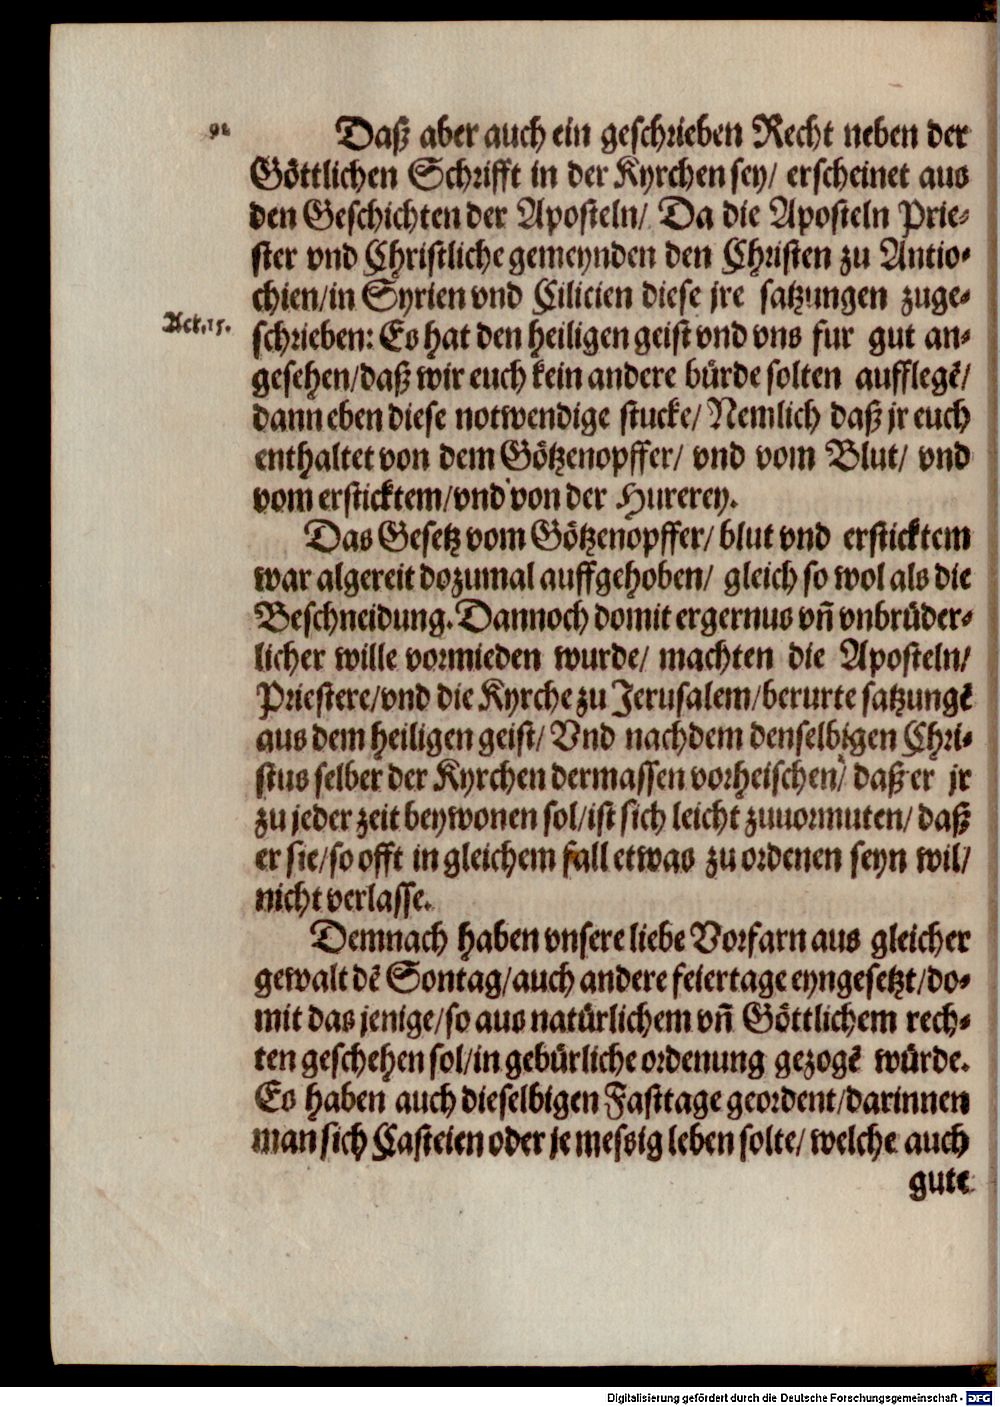 91
Daß aber auch ein geschrieben Recht neben der
Göttlichen Schrifft in der Kyrchen sey/ erscheinet aus
den Geschichten der Aposteln/ Da die Aposteln Prie-
ster vnd Christliche gemeynden den Christen zu Antio-
chien/in Syrien vnd Cilicien diese jre satzungen zuge-
Act.15.
schrieben: Es hat den heiligen geist vnd vns fur gut an-
gesehen/daß wir euch kein andere bürde solten aufflegē/
dann eben diese notwendige stucke/ Nemlich daß jr euch
enthaltet von dem Götzenopffer/ vnd vom Blut/ vnd
vom ersticktem/vnd von der Hurerey.
Das Gesetz vom Götzenopffer/ blut vnd ersticktem
war algereit dozumal auffgehoben/ gleich so wol als die
Beschneidung. Dannoch domit ergernus vñ vnbrüder-
licher wille vormieden wurde/ machten die Aposteln/
Priestere/vnd die Kyrche zu Jerusalem/berurte satzungē
aus dem heiligen geist/ Vnd nachdem denselbigen Chri-
stus selber der Kyrchen dermassen vorheischen/ daß er jr
zu jeder zeit beywonen sol/ist sich leicht zuuormuten/ daß
er sie/so offt in gleichem fall etwas zu ordenen seyn wil/
nicht verlasse.
Demnach haben vnsere liebe Vorfarn aus gleicher
gewalt dē Sontag/auch andere feiertage eyngesetzt/do-
mit das jenige/so aus natürlichem vñ Göttlichem rech-
ten geschehen sol/in gebürliche ordenung gezogē würde.
Es haben auch dieselbigen Fasttage geordent/darinnen
man sich Casteien oder je messig leben solte/ welche auch
gute
Digitalisierung gefördert durch die Deutsche Forschungsgemeinschaft - DFG